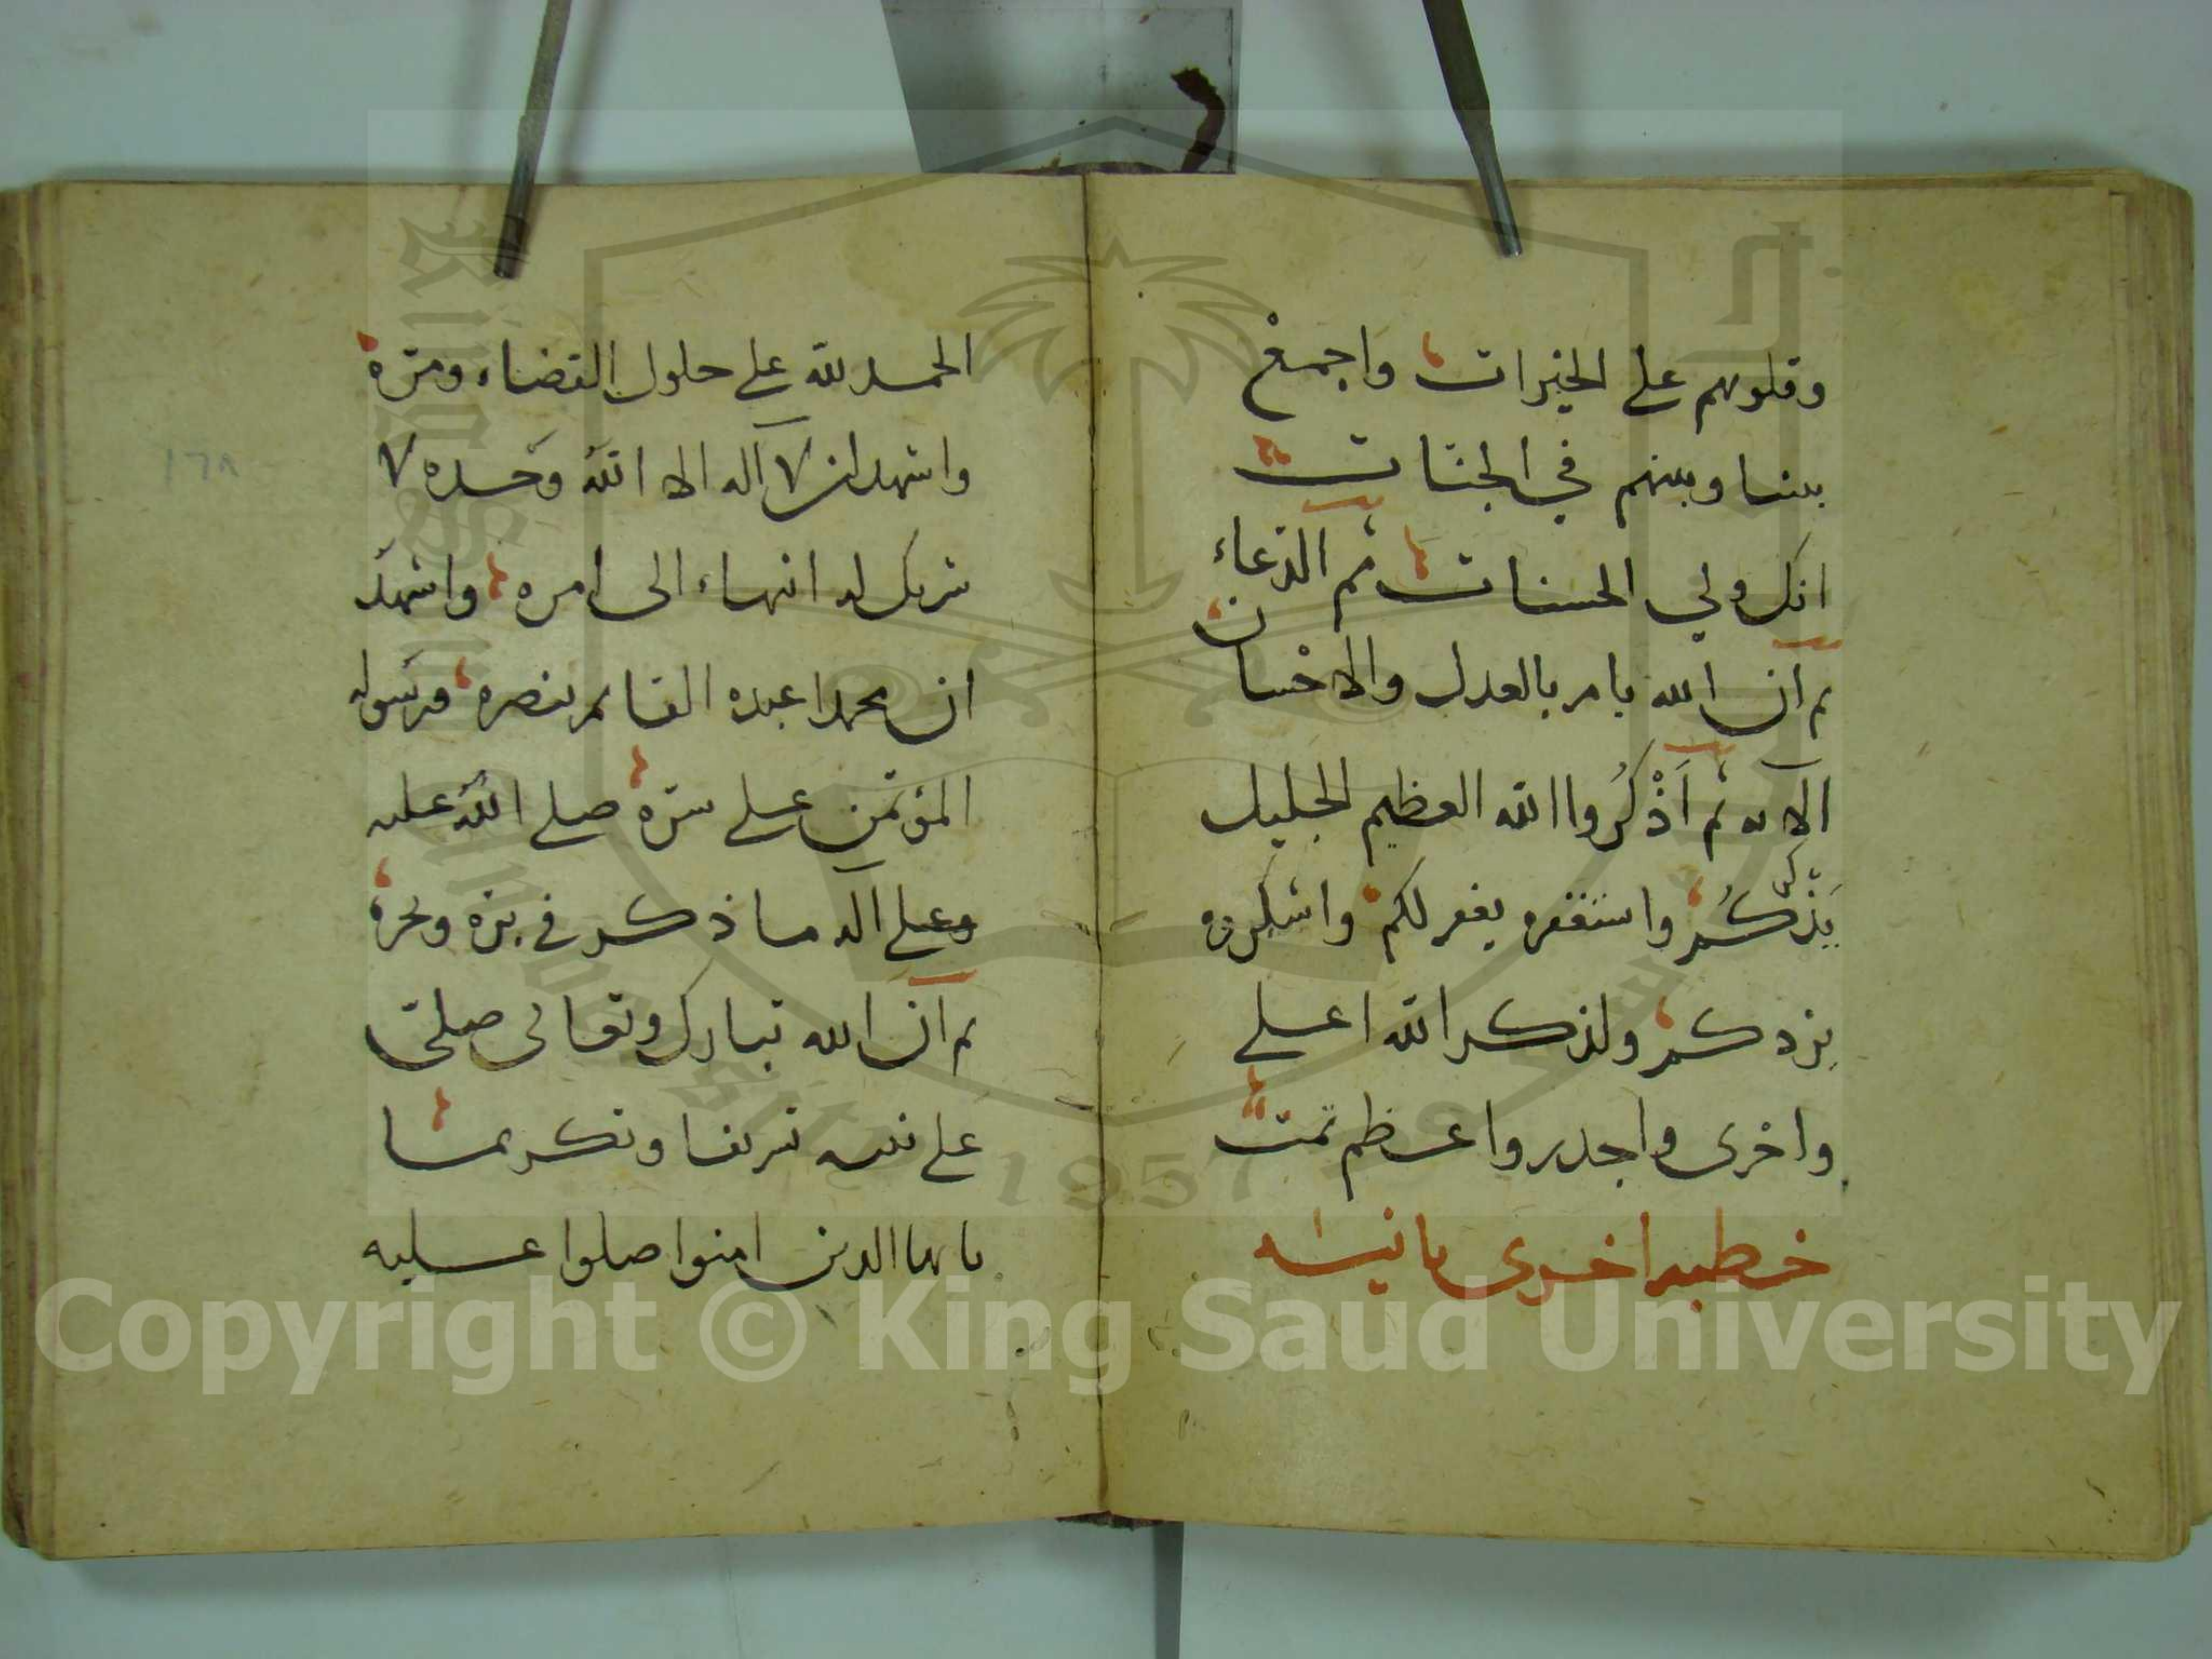 وقلوبهم على الخيرات واجمع
بيننا وبينهم في الجنات
انك ولي الحسنات ثم الدعاء
ثم ان الله يامر بالعدل والاحسان
الآيه ثم اذْكُروا الله العظيم الجليل
يَذْكُركُم واستغفره يغفر لكم واشكروه
يزدكم ولذكر الله اعلى
واحرى واجدر واعظم تمت
خطبه اخرى ثانيه
الحمد لله على حلول القضاء ومرّه
واشهد ان لا آله الا الله وحده لا
شريك له انهاء الى امره واشهد
ان محمدا عبده القائم بنصره ورسوله
المؤتمن على سرّه صلى الله عليه
وعلى آله ما ذكر في برّه وبحره
ثم ان الله تبارك وتعالى صلى
على نبيه تشريفا وتكريما
يا يها الذين امنوا صلوا عليه
١٦٨
King Saud University
1957
Copyright © King Saud University